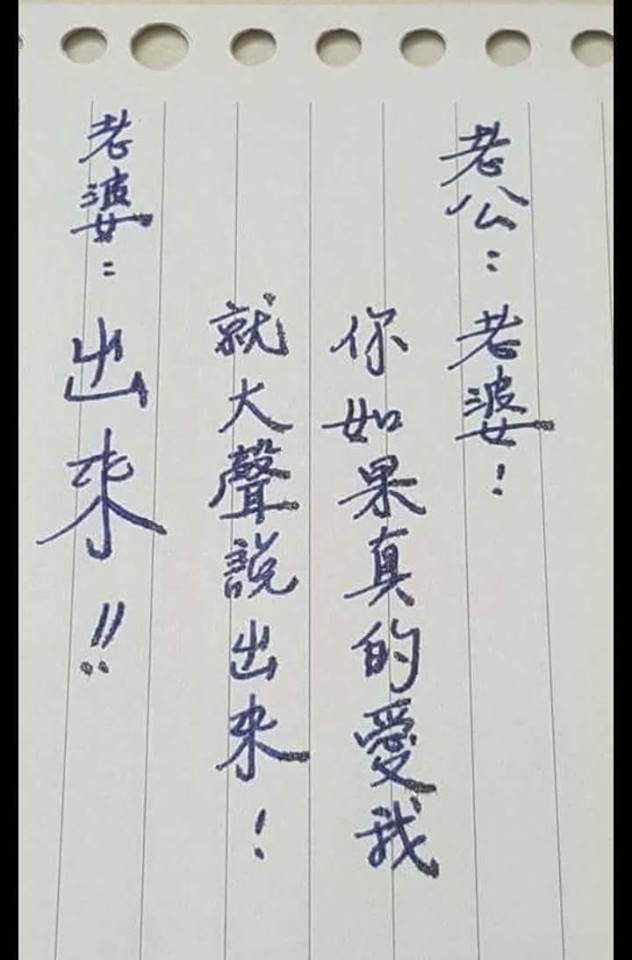 老公：老婆！
你如果真的愛我
就大聲說出來！
老婆：出來！！